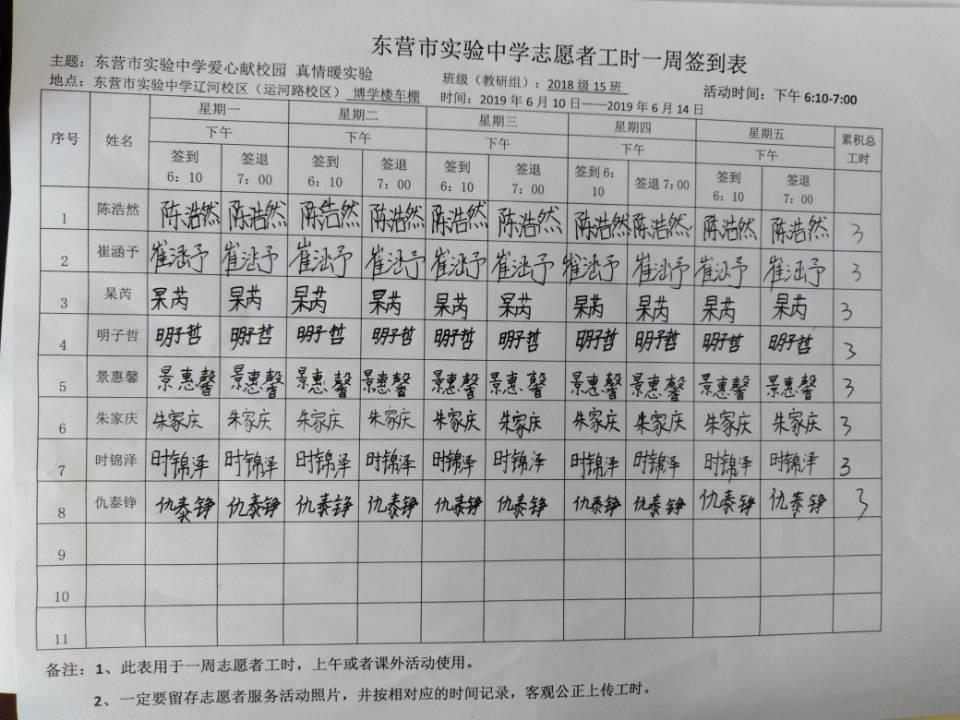 东营市实验中学志愿者工时一周签到表
主题：东营市实验中学爱心献校园 真情暖实验 班级（教研组）：2018 级 15 班 活动时间：下午 6:10-7:00
地点：东营市实验中学辽河校区（运河路校区） 博学楼车棚 时间：2019 年 6 月 10 日——2019 年 6 月 14 日
序号 姓名 星期一 星期二 星期三 星期四 星期五 累积总工时
下午 下午 下午 下午 下午
签到 6：10 签退 7：00 签到 6：10 签退 7：00 签到 6：10 签退 7：00 签到 6：10 签退 7:00 签到 6：10 签退 7：00
1 陈浩然 陈浩然 陈浩然 陈浩然 陈浩然 陈浩然 陈浩然 陈浩然 陈浩然 陈浩然 陈浩然 3
2 崔涵予 崔涵予 崔涵予 崔涵予 崔涵予 崔涵予 崔涵予 崔涵予 崔涵予 崔涵予 崔涵予 3
3 杲芮 杲芮 杲芮 杲芮 杲芮 杲芮 杲芮 杲芮 杲芮 杲芮 杲芮 3
4 明子哲 明子哲 明子哲 明子哲 明子哲 明子哲 明子哲 明子哲 明子哲 明子哲 明子哲 3
5 景惠馨 景惠馨 景惠馨 景惠馨 景惠馨 景惠馨 景惠馨 景惠馨 景惠馨 景惠馨 景惠馨 3
6 朱家庆 朱家庆 朱家庆 朱家庆 朱家庆 朱家庆 朱家庆 朱家庆 朱家庆 朱家庆 朱家庆 3
7 时锦泽 时锦泽 时锦泽 时锦泽 时锦泽 时锦泽 时锦泽 时锦泽 时锦泽 时锦泽 时锦泽 3
8 仇泰铮 仇泰铮 仇泰铮 仇泰铮 仇泰铮 仇泰铮 仇泰铮 仇泰铮 仇泰铮 仇泰铮 仇泰铮 3
9
10
11
备注：1、此表用于一周志愿者工时，上午或者课外活动使用。
2、一定要留存志愿者服务活动照片，并按相对应的时间记录，客观公正上传工时。